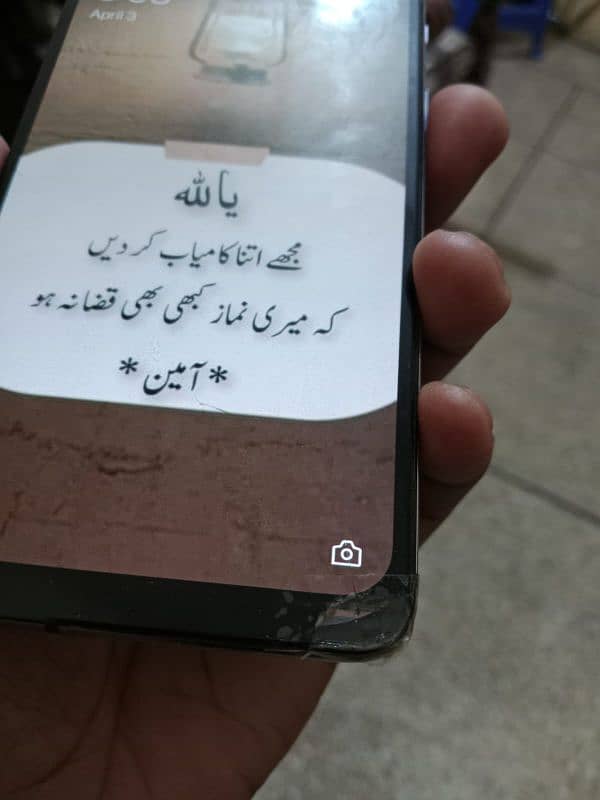 April 3
یا اللہ
مجھے اتنا کامیاب کر دیں
کہ میری نماز کبھی بھی قضا نہ ہو
*آمین*